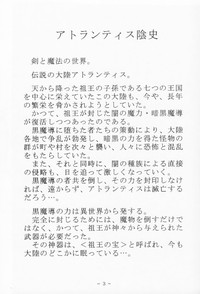 アトランティス陰史
剣と魔法の世界。
伝説の大陸アトランティス。
天から降った祖王の子孫である七つの王国
を中心に栄えていたこの大陸も、今や、長年
の繁栄を脅かされようとしていた。
かつて、祖王が封じた闇の魔力・暗黒魔導
が復活したのである。
黒魔導に堕ちた者たちの策動により、大陸
各地で争乱が勃発し、暗黒の力を得た怪物の
群が町や村を次々と襲い、人々に恐怖と混乱
をもたらしていた。
また、それと同時に、闇の種族による直接
の侵略も、日を追って激しくなっていく。
黒魔導の者共を倒し、その力を封印しなけ
れば、遠からず、アトランティスは滅亡する
だろう…。
黒魔導の力は異世界から発する。
完全に封じるためには、魔物を倒すだけで
はなく、かつて、祖王が神々から与えられた
武器が必要だった。
その神器は、<祖王の宝>と呼ばれ、今も
大陸のどこかに眠っている…。
- 3 -